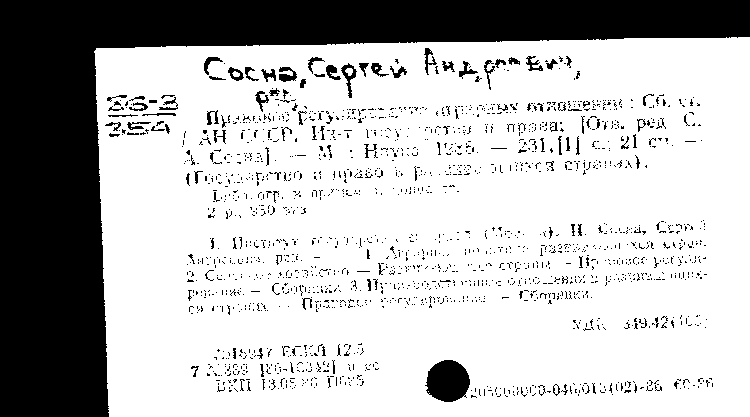 Сосна, Сергей Андреевич,
ред.
86-3
354
Правовое регулирование аграрных отношений : Сб. ст.
/ АН СССР, Ин-т государства и права; [Отв. ред. С.
А. Сосна]. — М. : Наука, 1986. — 231,[1] с.; 21 см. —
(Государство и право в развивающихся странах).
Библиогр. в примеч. в конце ст.
2 р., 950 экз.
1. Институт государства и права (Москва). II. Сосна, Сергей
Андреевич, ред. — 1. Аграрная политика развивающихся стран.
2. Сельское хозяйство — Развивающиеся страны — Правовое регули-
рование — Сборники. 3. Производственные отношения в развивающих-
ся странах — Правовое регулирование — Сборники.
УДК 349.42(100)
№18947 ЕСКЛ 12.5
7 №899 [86-16342] п
ВКП 13.05.86
040/013(02)-86 60-86